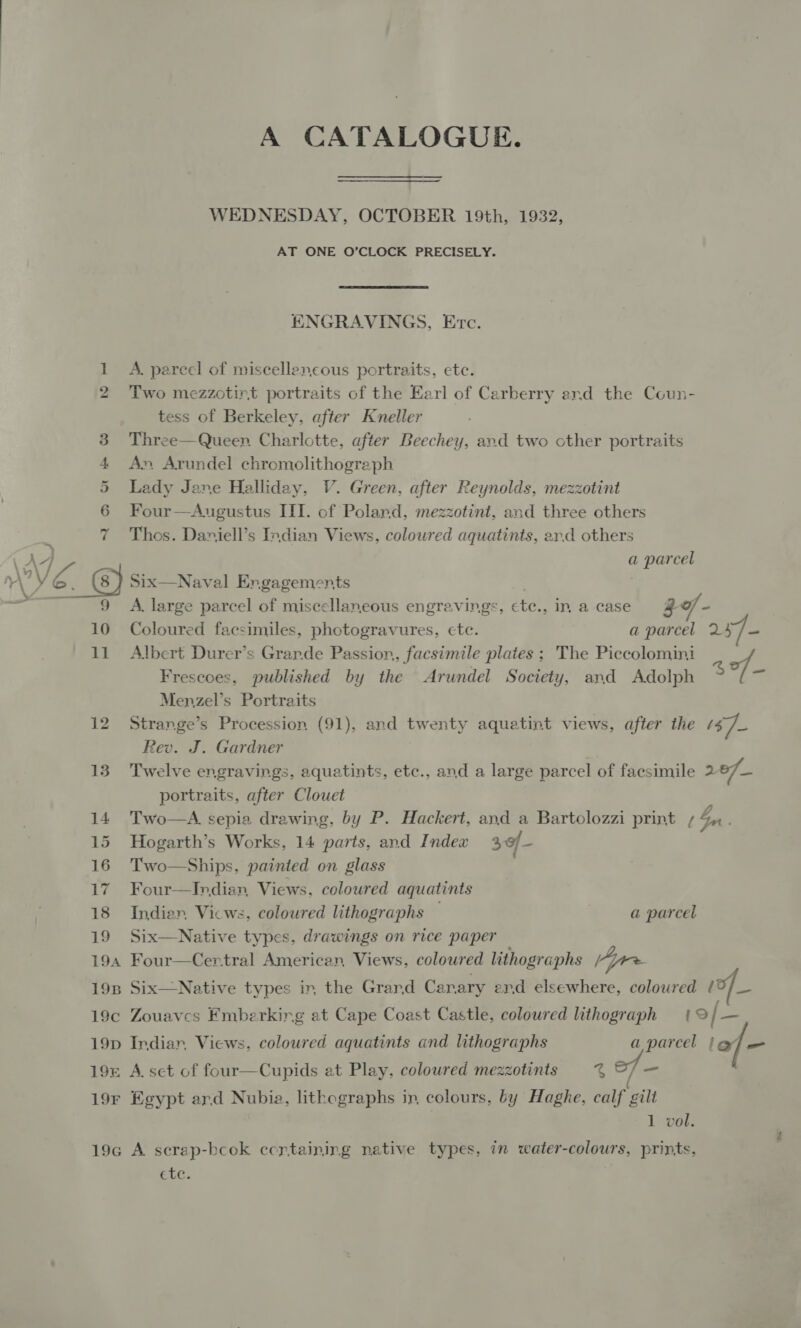 A CATALOGUE.
WEDNESDAY, OCTOBER 19th, 1932,
AT ONE O'CLOCK PRECISELY.
ENGRAVINGS, Etc.
1 A parcel of miscellaneous portraits, etc.
2 Two mezzotint portraits of the Earl of Carberry and the Coun-
tess of Berkeley, after Kneller
3 Three—Queen Charlotte, after Beechey, and two other portraits
4 An Arundel chromolithograph
5 Lady Jane Halliday, V. Green, after Reynolds, mezzotint
6 Four—Augustus III. of Poland, mezzotint, and three others
7 Thos. Daniell's Indian Views, coloured aquatints, and others
a parcel
8 Six—Naval Engagements
9 A large parcel of miscellaneous engravings, etc., in a case
10 Coloured facsimiles, photogravures, etc. a parcel 25/-
11 Albert Durer's Grande Passion, facsimile plates; The Piccolomini
Frescoes, published by the Arundel Society, and Adolph 30/-
Menzel's Portraits
12 Strange's Procession (91), and twenty aquatint views, after the 15/-
Rev. J. Gardner
13 Twelve engravings, aquatints, etc., and a large parcel of facsimile 20/-
portraits, after Clouet
14 Two—A sepia drawing, by P. Hackert, and a Bartolozzi print
15 Hogarth's Works, 14 parts, and Index 30/-
16 Two—Ships, painted on glass
17 Four—Indian Views, coloured aquatints
18 Indian Views, coloured lithographs a parcel
19 Six—Native types, drawings on rice paper
19A Four—Central American Views, coloured lithographs
19B Six—Native types in the Grand Canary and elsewhere, coloured 10/-
19C Zouaves Embarking at Cape Coast Castle, coloured lithograph 10/-
19D Indian Views, coloured aquatints and lithographs a parcel 10/-
19E A set of four—Cupids at Play, coloured mezzotints
19F Egypt and Nubia, lithographs in colours, by Haghe, calf gilt
1 vol.
19G A scrap-book containing native types, in water-colours, prints,
etc.